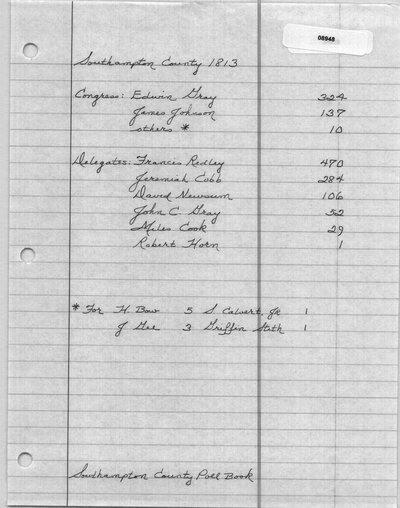 08948
Southampton County 1813
Congress: Edwin Gray 324
James Johnson 137
others * 10
Delegates: Francis Redley 470
Jeremiah Cobb 284
David Newsum 106
John C. Gray 52
Miles Cook 29
Robert Horn 1
* For H. Bow 5 S. Calvert, Jr 1
J Gee 3 Griffin Stith 1
Southampton County Poll Book